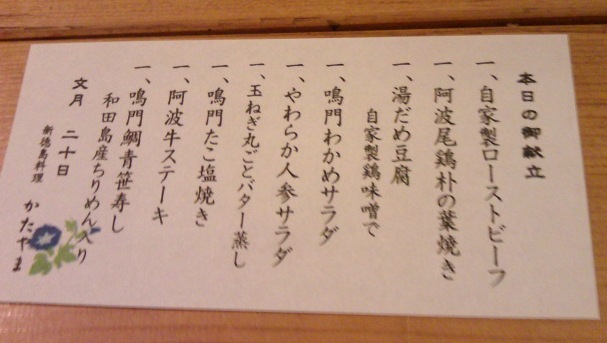 本日の御献立
一、自家製ローストビーフ
一、阿波尾鶏朴の葉焼き
一、湯だめ豆腐
自家製鶏味噌で
一、鳴門わかめサラダ
一、やわらか人参サラダ
一、玉ねぎ丸ごとバター蒸し
一、鳴門たこ塩焼き
一、阿波牛ステーキ
一、鳴門鯛青笹寿し
和田島産ちりめん入り
文月 二十日
新徳島料理 かたやま